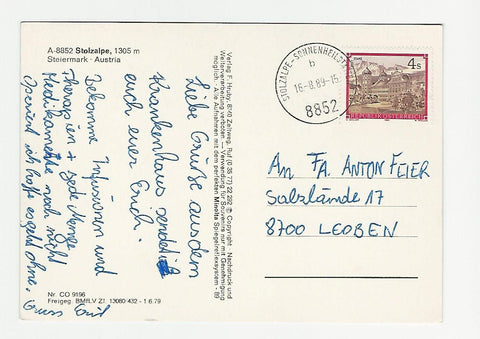 A-8852 Stolzalpe, 1305 m
Steiermark · Austria
Liebe Grüße aus dem
Krankenhaus sendet
euch euer Erich.
Bekomme Infusionen und
Therapien + jede Menge
Medikamente noch nicht
operiert ich hoffe es geht ohne.
Gruss Erich
Nr. CO 9196
Freigeg. BMfLV Zl. 13080 432 - 1 6.79
Verlag F. Hruby, 8740 Zeltweg, Ruf (0 35 77) 22 292 © Copyright · Nachdruck und
Weiterverarbeitung verboten — Verwendung für Souvenirs nur mit Genehmigung
möglich. · Alle Aufnahmen mit dem perfekten Minolta Spiegelreflexsystem - 89
STOLZALPE-SONNENHEILSTÄTTE
b
16.-8.89-15
8852
4 S
REPUBLIK ÖSTERREICH
An FA. ANTON FEIER
Salzlände 17
8700 LEOBEN